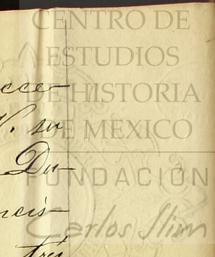 CENTRO DE
ESTUDIOS
DE HISTORIA
DE MEXICO
FUNDACIÓN
Carlos Slim
V. su
Du-
tres